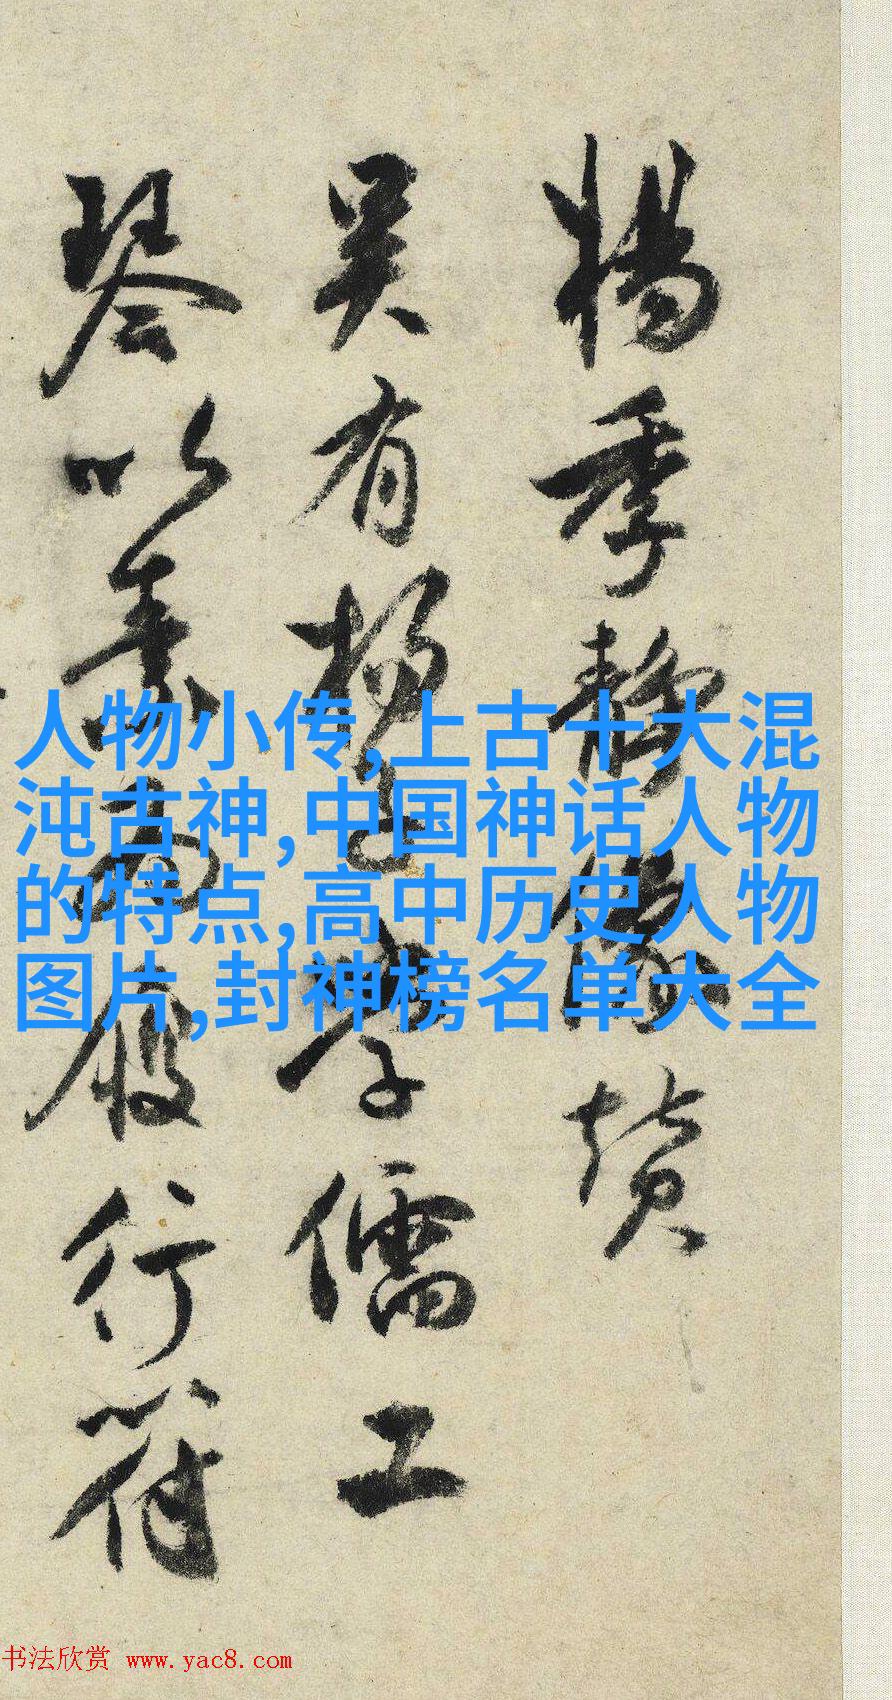 楊季静像赞
吴有楊子學儒工
琴以素履行符
人物小传,上古十大混
沌古神,中国神话人物
的特点,高中历史人物
图片,封神榜名单大全
书法欣赏 www.yac8.com